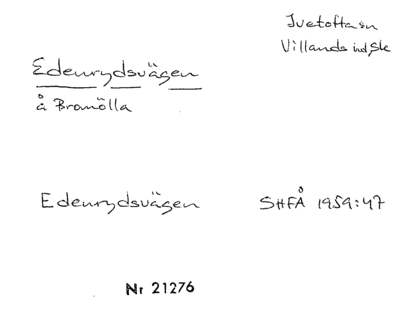 Ivetofta sn
Villands hd, Sk
Edenrydsvägen
å Bromölla
Edenrydsvägen SHFÅ 1959:47
Nr 21276